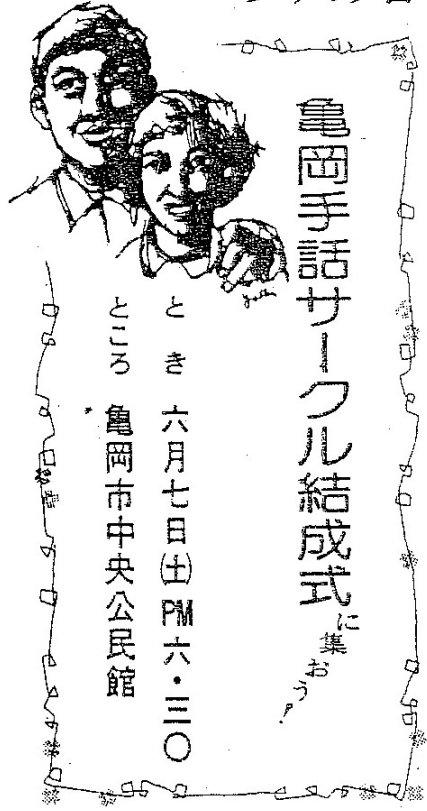 亀岡手話サークル結成式に集おう!
とき 六月七日(土)PM六・三〇
ところ 亀岡市中央公民館